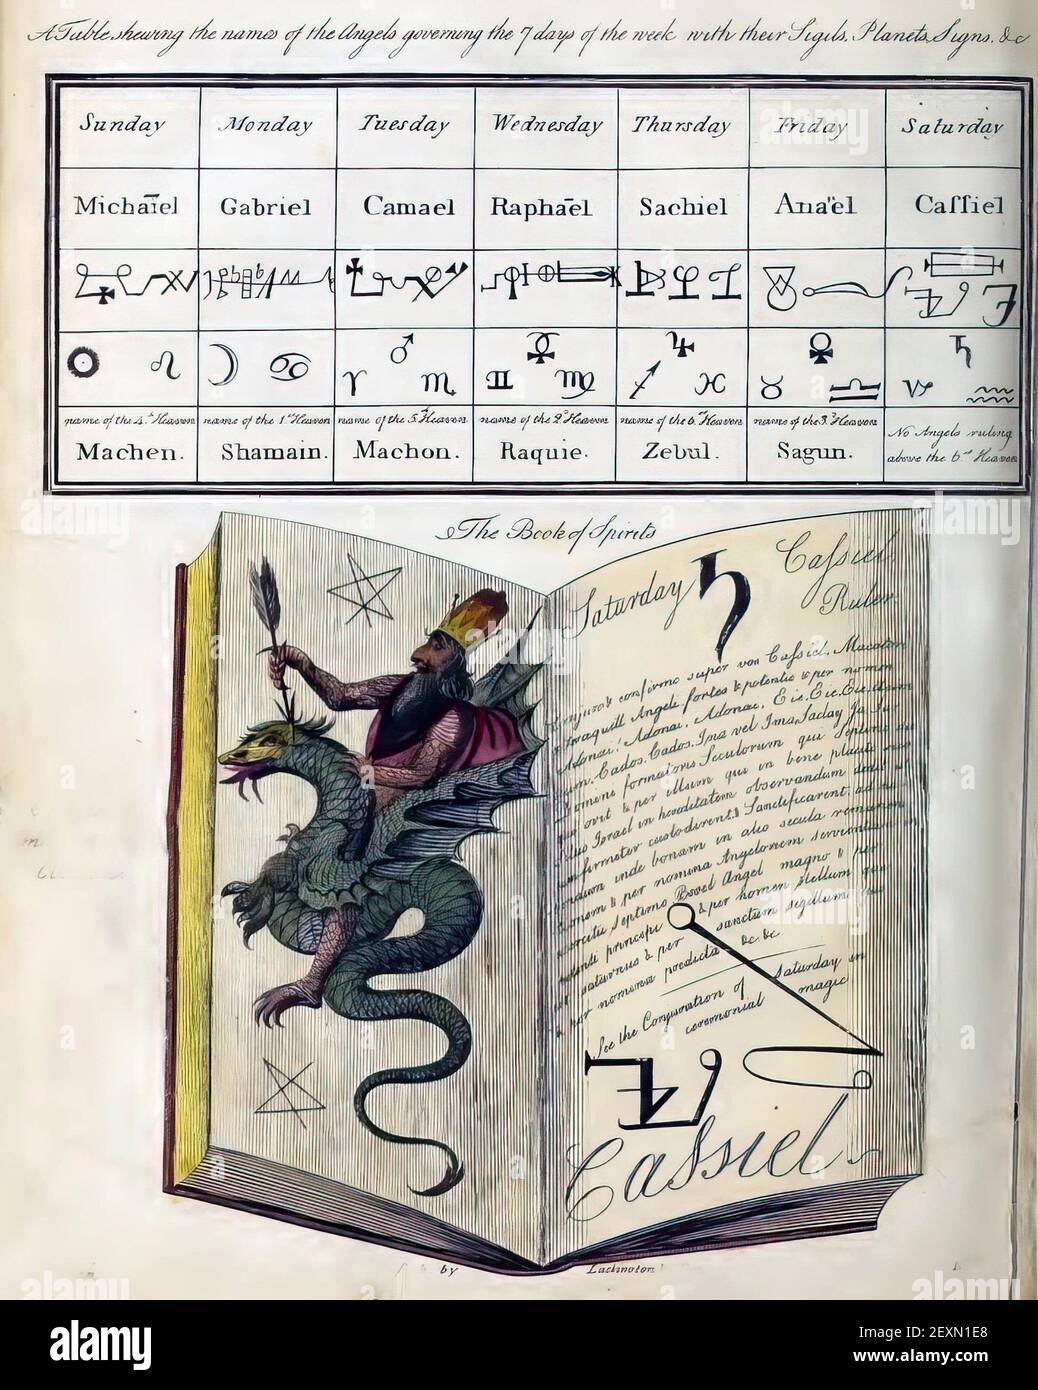 A Table shewing the names of the Angels governing the 7 days of the week with their Sigils, Planets, Signs, &c
Sunday Monday Tuesday Wednesday Thursday Friday Saturday
Michaïel Gabriel Camael Raphaël Sachiel Ana'ël Caſſiel
☉ ♌ ☽ ♋ ♂ ♈ ♏ ☿ ♊ ♍ ♃ ♐ ♓ ♀ ♉ ♎ ♄ ♑ ♒
name of the 4th Heaven name of the 1st Heaven name of the 5th Heaven name of the 2d Heaven name of the 6th Heaven name of the 3d Heaven No Angels ruling above the 6th Heaven
Machen. Shamain. Machon. Raquie. Zebul. Sagun.
The Book of Spirits
Saturday ♄ Caſſiel
Ruler
confirmo super vos Caſſiel, Macoton
Angeli fortes & potentes & per nomen
Adonay, Adonay, Eie, Eie, Eie,
Cados, Cados, Ima vel Ima, Saday, Ja, Jar
formatoris Seculorum qui Septimo die
& per illum qui in bene placito suo
Israel in hereditatem observandum dedit
custodirent & Sanctificarent, ad
inde bonam in alio secula
& per nomina Angelorum
Septimo Booel Angel magno &
principe & per nomen stellum
saturnus & per sanctum sigillum
nomina prædicta &c &c
See the Conjuration of Saturday in
ceremonial magic
Caſsiel
by Lackington
alamy
Image ID: 2EXN1E8
www.alamy.com